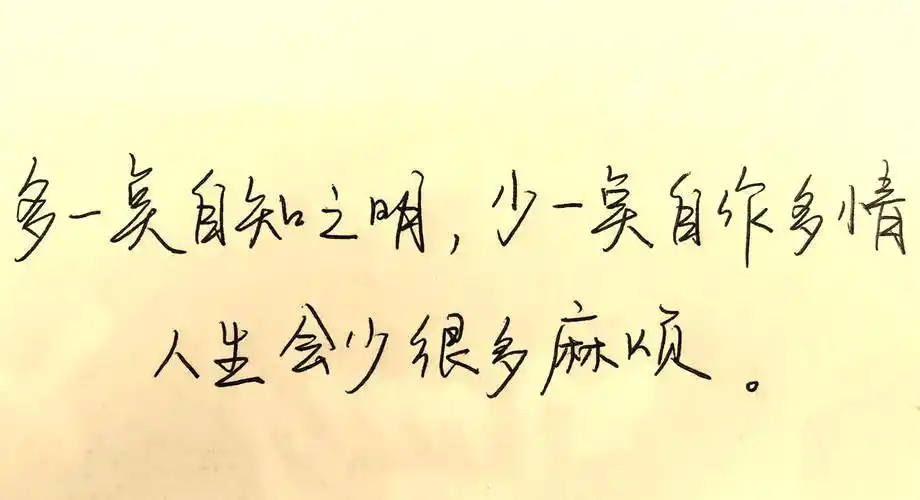 多一点自知之明，少一点自作多情
人生会少很多麻烦。